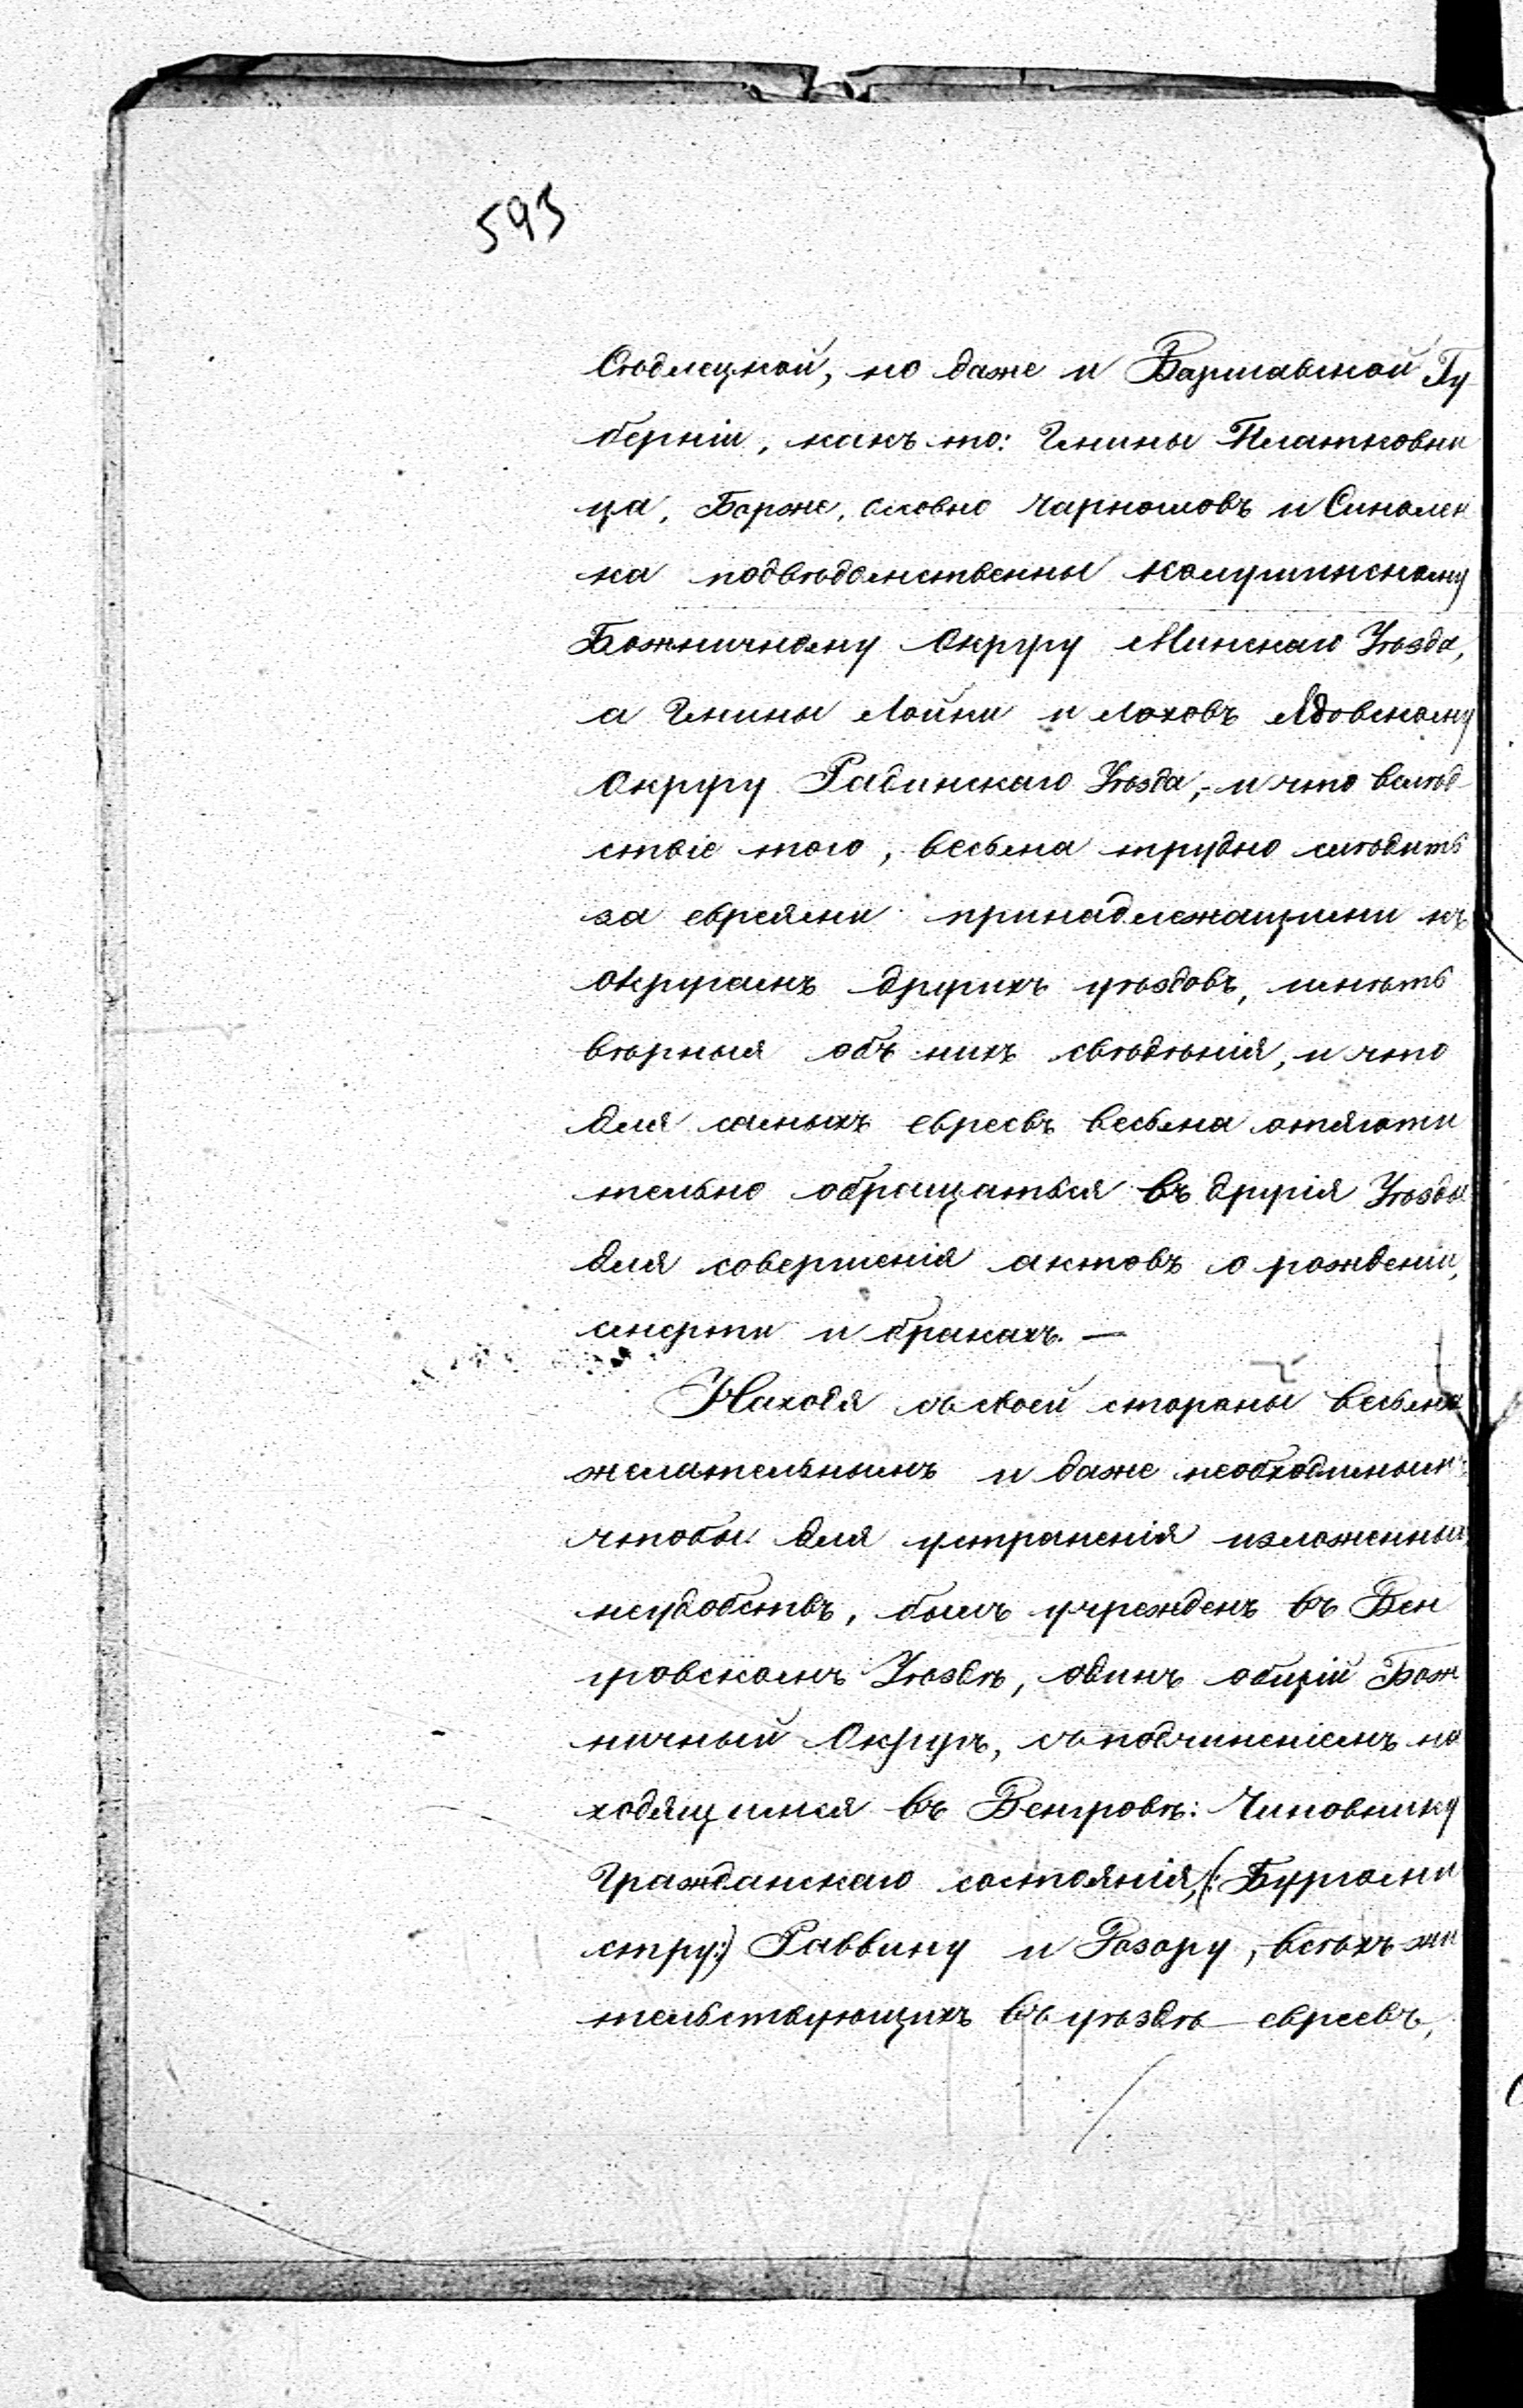 593
Сѣдлецкой, но даже и Варшавской Гу-
берніи, какъ то: Гмины Платковни
ца, Борже, словно Чарногловъ и Синолен
ка подвѣдомственны Калушинскому
Божничному Округу Минскаго Уѣзда,
а Гмины Лойки и Лоховъ Ядовскому
Округу Радинскаго Уѣзда,- и что вслѣд-
ствіе того, весьма трудно слѣдить
за евреями принадлежащими къ
округамъ другихъ уѣздовъ, имѣть
вѣрныя объ нихъ свѣдѣнія, и что
для самыхъ евреевъ весьма отяготи
тельно обращаться въ другія Уѣзды
для совершенія актовъ о рожденіи,
смерти и бракахъ. —
Находя съ своей стороны весьма
желательнымъ и даже необходимымъ
чтобы для устраненія изложенныхъ
неудобствъ, былъ учрежденъ въ Вен
гровскомъ Уѣздѣ, одинъ общій Бож
ничный Округъ, съ подчиненіемъ на
ходящимся въ Венгровѣ: Чиновнику
Гражданскаго состоянія, (: Бургоми
стру:) Раввину и Дозору, всѣхъ жи
тельствующихъ въ уѣздѣ евреевъ,